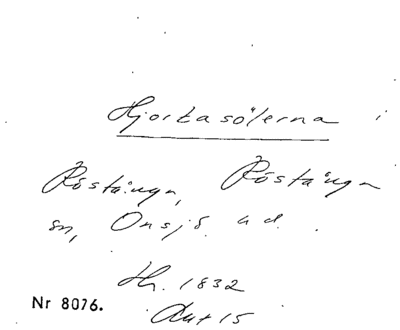 Hjortasölerna i
Röstånga, Röstånga
sn, Onsjö. h d.
Hr. 1832
Nr 8076.
Akt 15